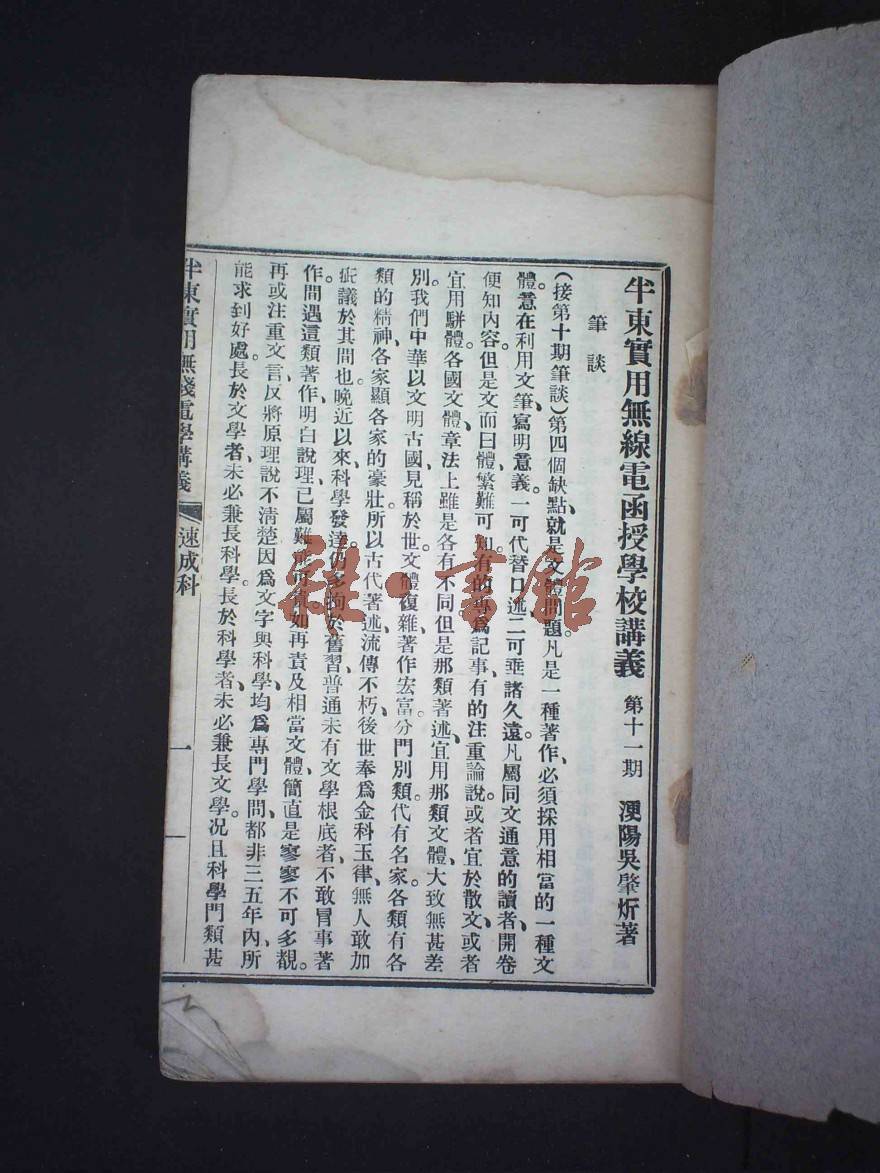 半東實用無線電函授學校講義 第十一期 浭陽吳肇炘著
筆談
(接第十期筆談)第四個缺點、就是文體問題。凡是一種著作、必須採用相當的一種文
體。意在利用文筆、寫明意義。一可代替口述、二可垂諸久遠。凡屬同文通意的讀者、開卷
便知內容。但是文而曰體、繁難可知。有的專爲記事、有的注重論說、或者宜於散文、或者
宜用駢體。各國文體、章法上雖是各有不同、但是那類著述、宜用那類文體、大致無甚差
別。我們中華以文明古國、見稱於世。文體復雜、著作宏富。分門別類、代有名家。各類有各
類的精神、各家顯各家的豪壯。所以古代著述、流傳不朽、後世奉爲金科玉律、無人敢加
疵議於其間也。晚近以來、科學發達、仍多拘於舊習、普通未有文學根底者、不敢冒事著
作。間遇這類著作、明白說理、已屬難能可貴。如再責及相當文體、簡直是寥寥不可多覩。
再或注重文言、反將原理說不清楚。因爲文字與科學、均爲專門學問、都非三五年內、所
能求到好處。長於文學者、未必兼長科學。長於科學者、未必兼長文學。況且科學門類甚
半東實用無綫電學講義 速成科 一
雜·書館